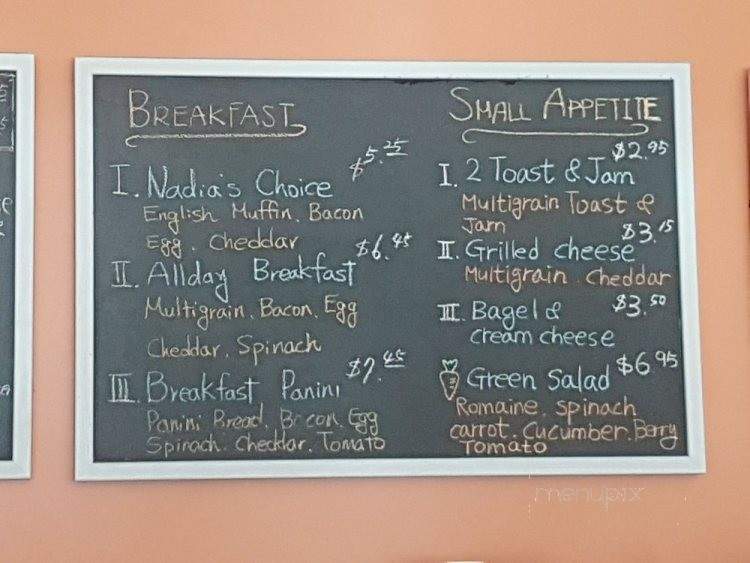 BREAKFAST
$5.25
I. Nadia's Choice
English Muffin, Bacon
Egg, Cheddar
$6.45
II. Allday Breakfast
Multigrain, Bacon, Egg
Cheddar, Spinach
$7.45
III. Breakfast Panini
Panini Bread, Bacon, Egg
Spinach, Cheddar, Tomato
SMALL APPETITE
$2.95
I. 2 Toast & Jam
Multigrain Toast &
Jam
$3.15
II. Grilled cheese
Multigrain, cheddar
$3.50
III. Bagel &
cream cheese
$6.95
Green Salad
Romaine, spinach
carrot, Cucumber, Berry
Tomato
menupix